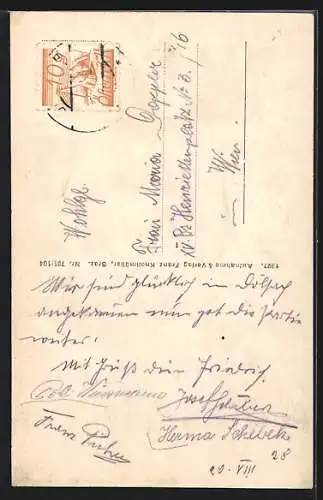 10
Groschen
Wohlg.
Frau Maria Doppler
XV. Bz Henriettenplatz No 3. / 16
Wien.
1927. Aufnahme & Verlag Franz Knollmüller, Graz. Nr. 701/104
Wir sind glücklich in Dölsach
angekommen nun geht die Partie
weiter!
Mit Gruß dein Friedrich.
Josef
Franz
Herma
28
20 - VIII